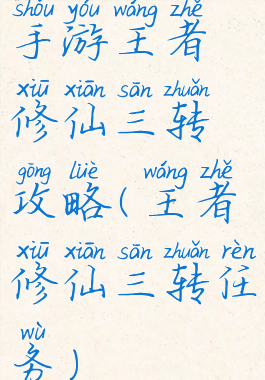 shǒu yóu wáng zhě
手游王者
xiū xiān sān zhuǎn
修仙三转
gōng lüè wáng zhě
攻略(王者
xiū xiān sān zhuǎn rèn
修仙三转任
wù
务)